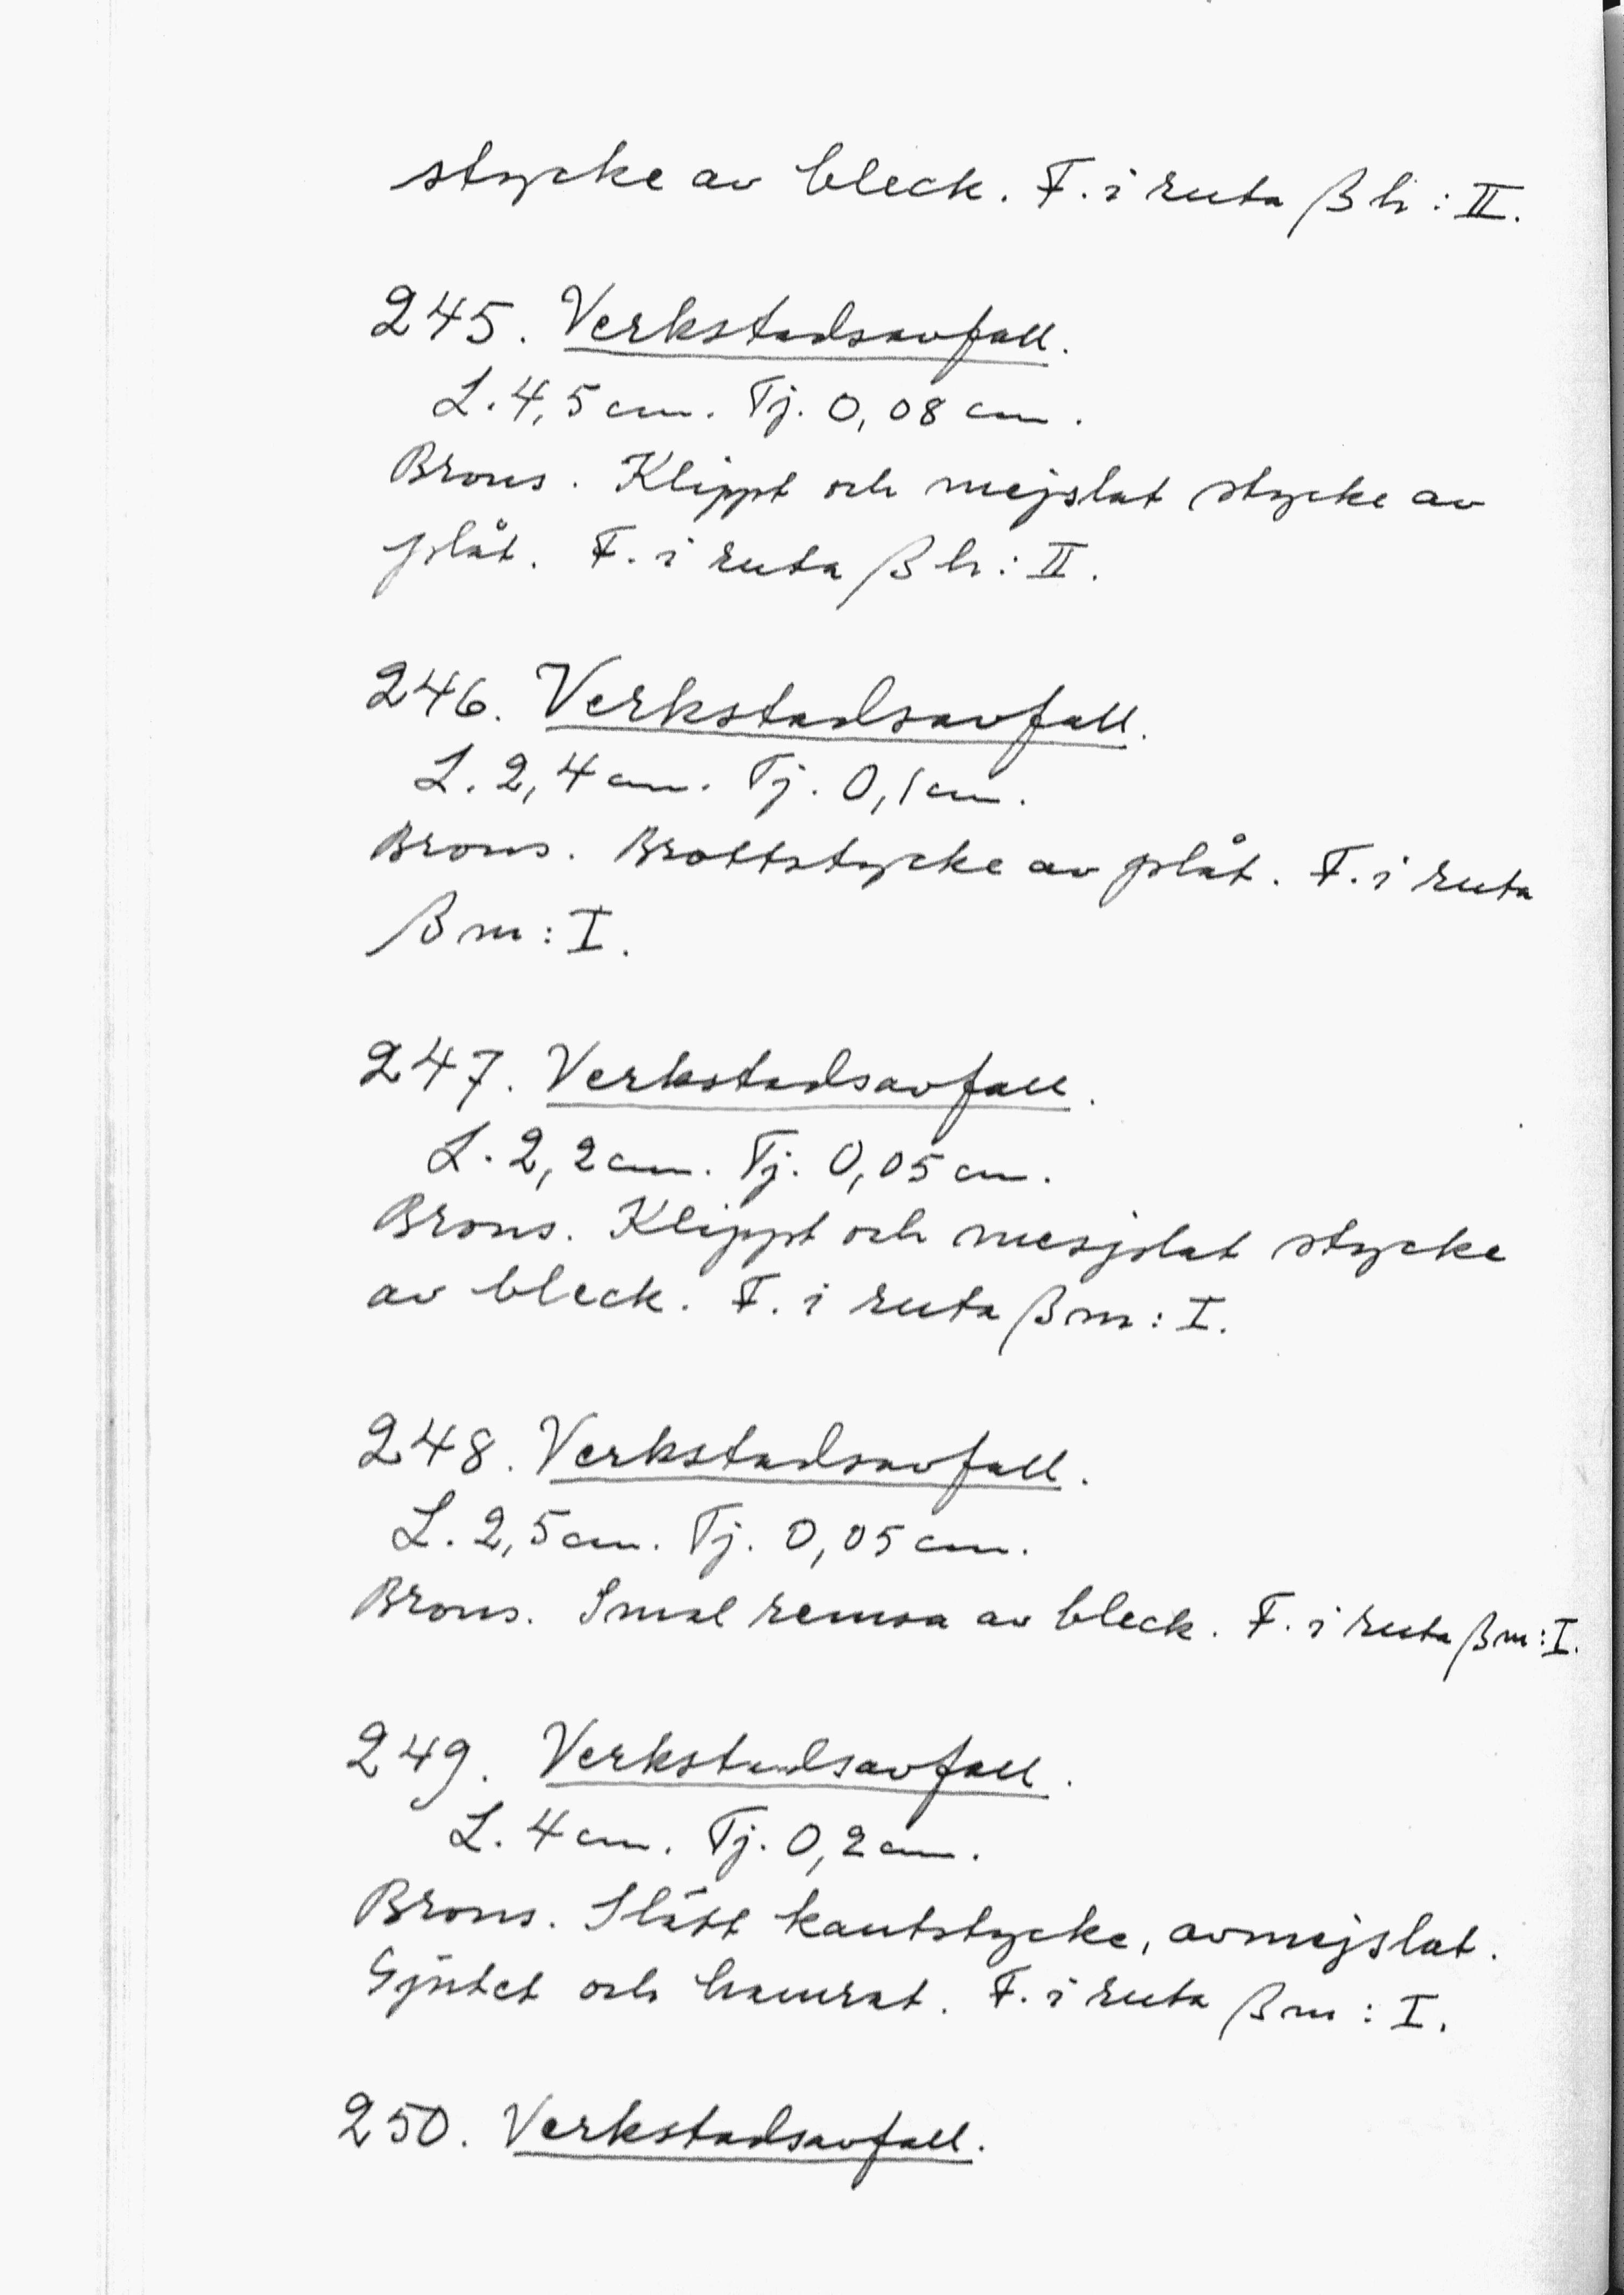 stycke av bleck. F. i ruta βh : II.
245. Verkstadsavfall.
L. 4,5 cm. Tj. 0,08 cm.
Brons. Klippt och mejslat stycke av
plåt. F. i ruta βh : II.
246. Verkstadsavfall.
L. 2,4 cm. Tj. 0,1 cm.
Brons. Brottstycke av plåt. F. i ruta
βm : I.
247. Verkstadsavfall.
L. 2,2 cm. Tj. 0,05 cm.
Brons. Klippt och mesjslat stycke
av bleck. F. i ruta βm : I.
248. Verkstadsavfall.
L. 2,5 cm. Tj. 0,05 cm.
Brons. Smal remsa av bleck. F. i ruta βm : I.
249. Verkstadsavfall.
L. 4 cm. Tj. 0,2 cm.
Brons. Slätt kantstycke, avmejslat.
Gjutet och hamrat. F. i ruta βm : I.
250. Verkstadsavfall.